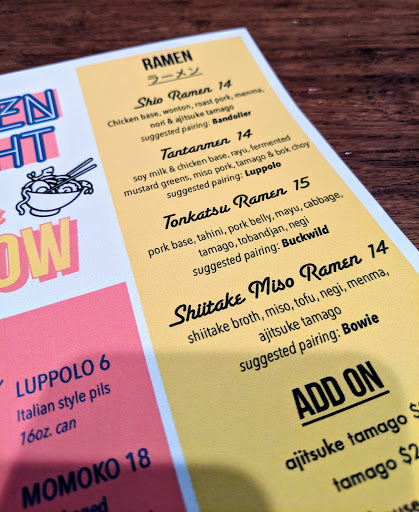 GHT
OW
LUPPOLO 6
Italian style pils
16oz. can
MOMOKO 18
RAMEN
ラーメン
Shio Ramen 14
Chicken base, wonton, roast pork, menma,
nori & ajitsuke tamago
suggested pairing: Bandolier
Tantanmen 14
soy milk & chicken base, rayu, fermented
mustard greens, miso pork, tamago & bok choy
suggested pairing: Luppolo
Tonkatsu Ramen 15
pork base, tahini, pork belly, mayu, cabbage,
tamago, tobandjan, negi
suggested pairing: Buckwild
Shiitake Miso Ramen 14
shiitake broth, miso, tofu, negi, menma,
ajitsuke tamago
suggested pairing: Bowie
ADD ON
ajitsuke tamago $
tamago $2